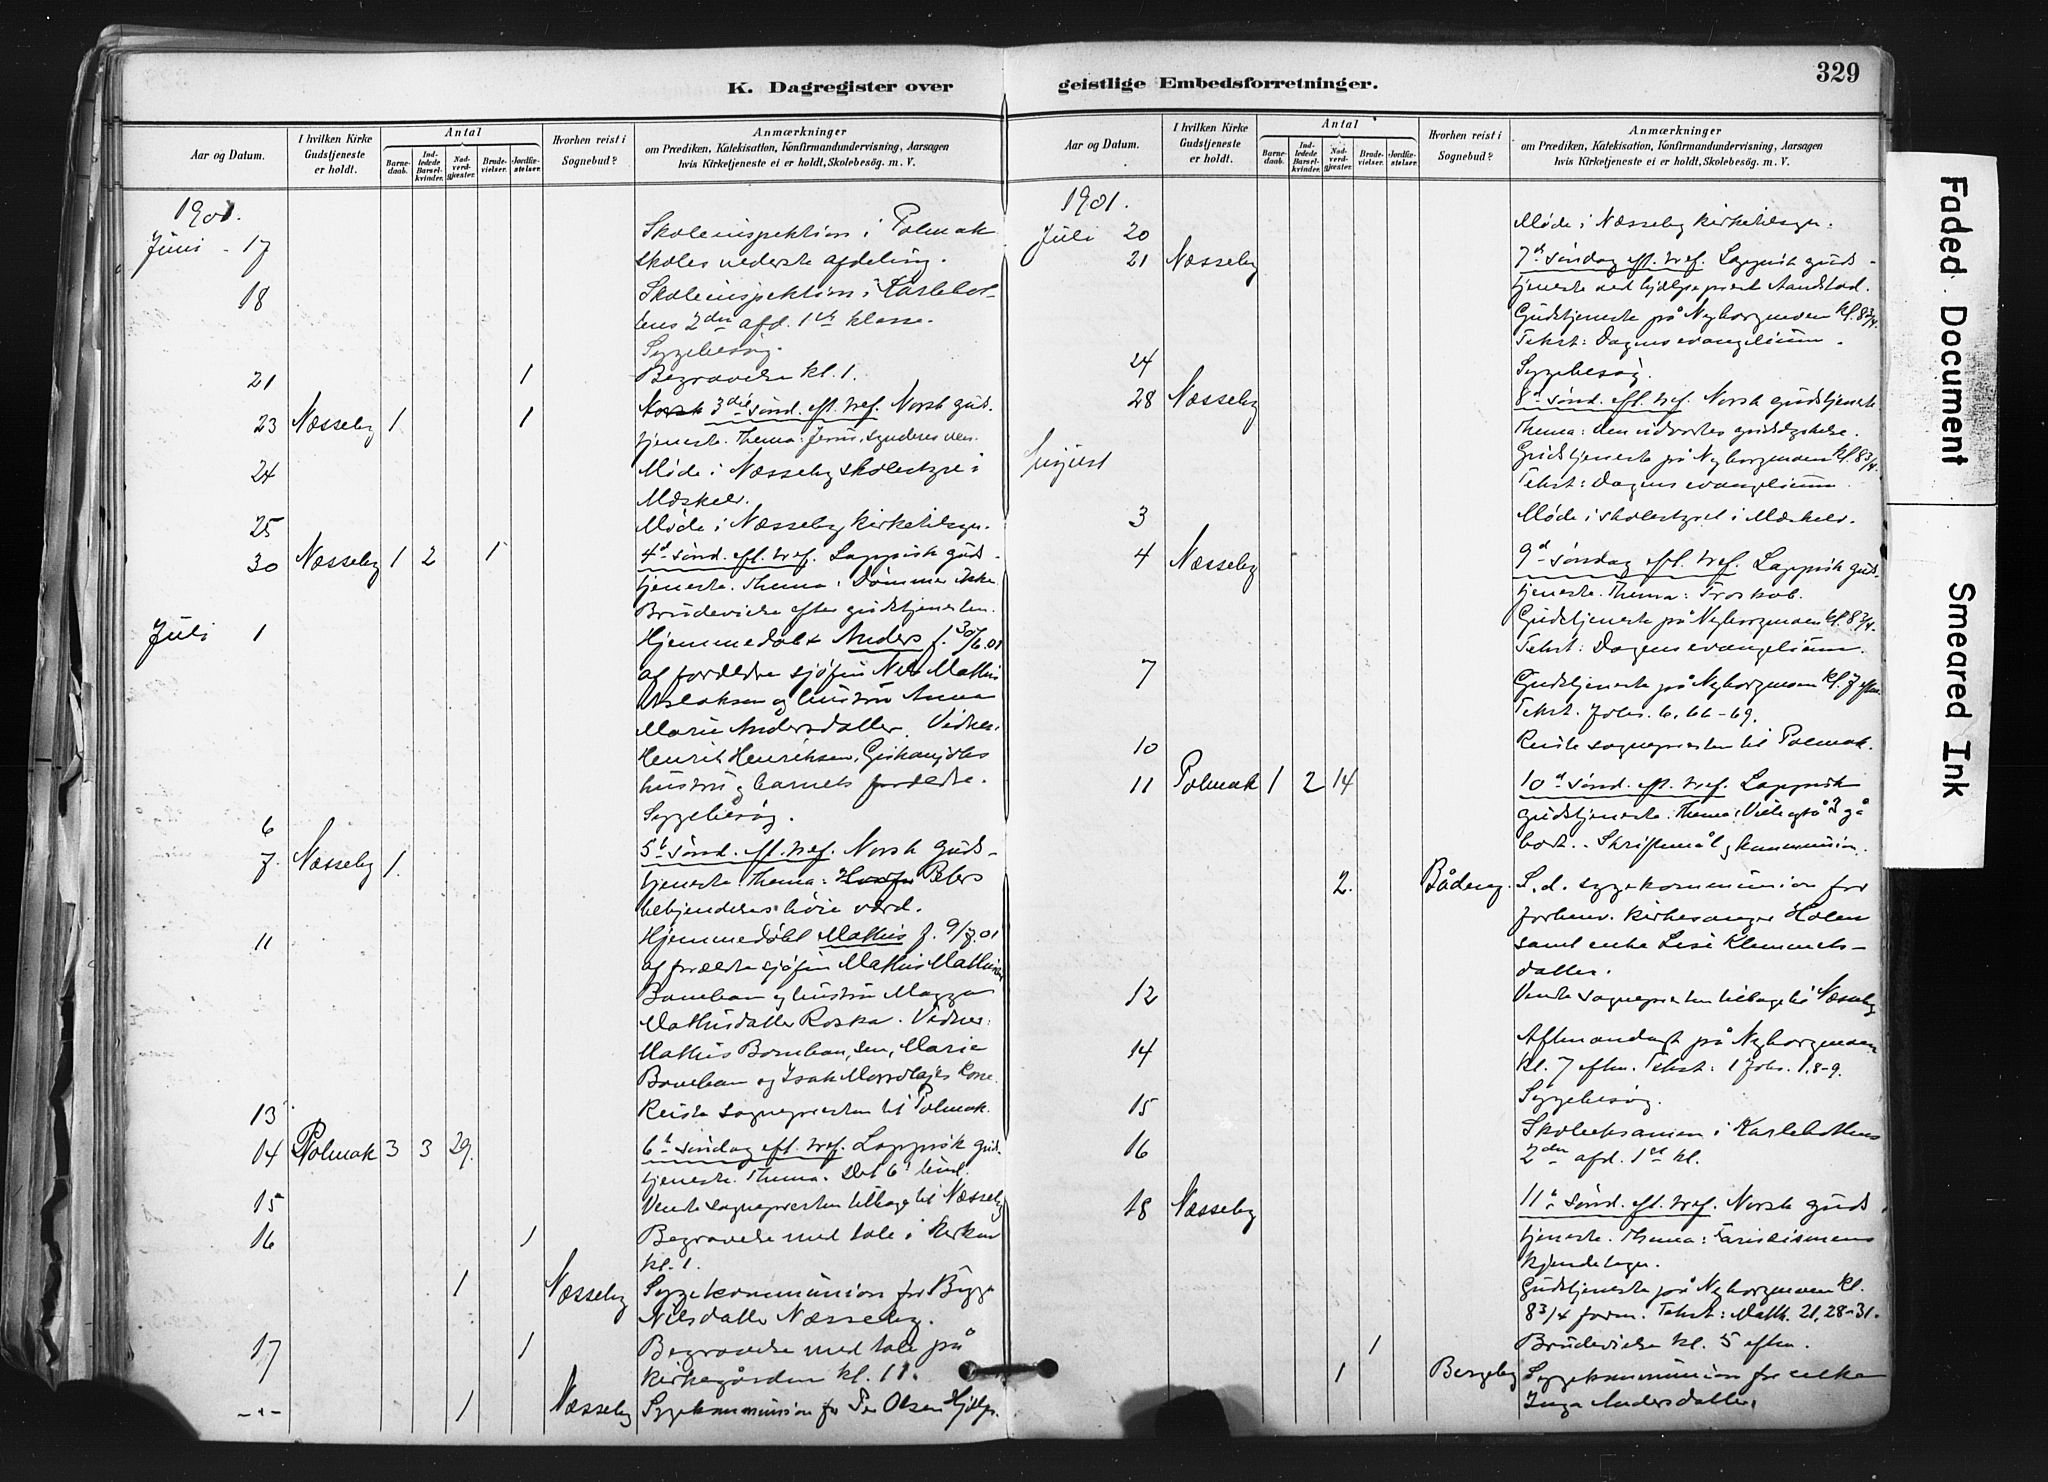 K. Dagregister over
Aar og Datum.
I hvilken Kirke Gudstjeneste er holdt.
Antal
Barnedaab.
Indledede Barselkvinder.
Nadverdgjæster.
Brudevielser.
Jordfæstelser.
Hvorhen reist i Sognebud?
Anmærkninger
om Prædiken, Katekisation, Konfirmandundervisning, Aarsagen
hvis Kirketjeneste ei er holdt, Skolebesøg. m. V.
1901.
Juni - 17 Skoleinspektion i Polmak
skoles nederste afdeling.
18 Skoleinspektion i Karlebot-
tens 2den afd. 1ste klasse.
Sygebesøg.
21 1 Begravelse kl. 1.
23 Næsseby 1 1 Norsk 3die sønd. eft. tref. Norsk guds-
tjeneste. Thema: Jesus, synderes ven.
24 Møde i Næsseby skolestyre i
Mæskelv.
25 Møde i Næsseby kirketilsyn.
30 Næsseby 1 2 1 4d sønd. eft. tref. Lappisk guds-
tjeneste. Thema: Dømmer ikke.
Brudevielse efter gudstjenesten.
Juli 1 Hjemmedøbt Anders f. 30/6.01
af forældre sjøfin Nils Mathis
Aslaksen og hustru Anna
Marie Andersdatter. Vidner:
Henrik Henriksen,
hustru og barnets forældre.
6 Sygebesøg.
7. Næsseby 1. 5t sønd. eft. tref. Norsk guds-
tjeneste. Thema: Peters
bekjendelses høie værd.
11 Hjemmedøbt Mathis f. 9/7.01
af forældre sjøfin Mathis Mathisen
Banehan og hustru Magga
Mathisdatter Roska. Vidner:
Mathis Banehan, sen, Marie
Banehan og Isak kone.
13 Reiste sognepresten til Polmak.
14 Polmak 3 3 29. 6t søndag eft. tref. Lappisk guds-
tjeneste. Thema: Det 6te bud.
15 Vendte sognepresten tilbage til Næsseby
16 1 Begravelse med tale i kirken
kl. 1.
1 Næsseby Sygekommunion for
Nilsdatter Næsseby.
17 1 Begravelse med tale på
kirkegården kl. 11.
-"- 1 Næsseby Sygekommunion for Per Olsen
geistlige Embedsforretninger.
329
Aar og Datum.
I hvilken Kirke Gudstjeneste er holdt.
Antal
Barnedaab.
Indledede Barselkvinder.
Nadverdgjæster.
Brudevielser.
Jordfæstelser.
Hvorhen reist i Sognebud?
Anmærkninger
om Prædiken, Katekisation, Konfirmandundervisning, Aarsagen
hvis Kirketjeneste ei er holdt, Skolebesøg. m. V.
1901.
Juli 20 Møde i Næsseby kirketilsyn.
21 Næsseby 7d søndag eft. tref. Lappisk guds-
tjeneste ved hjælpeprest Aandstad.
Gudstjeneste på Nyborgmoen kl. 8 3/4.
Tekst: Dagens evangelium.
24 Sygebesøg.
28 Næsseby 8d sønd. eft. tref. Norsk gudstjeneste.
Thema: Den udvortes gudsdyrkelse.
Gudstjeneste på Nyborgmoen kl. 8 3/4.
Tekst: Dagens evangelium.
August
3 Møde i skolestyret i Mæskelv.
4 Næsseby 9d søndag eft. tref. Lappisk guds-
tjeneste. Thema: Troskab.
Gudstjeneste på Nyborgmoen kl. 8 3/4.
Tekst: Dagens evangelium.
7 Gudstjeneste på Nyborgmoen kl. 7 eftm.
Tekst. Johs. 6, 66-69.
10 Reiste sognepresten til Polmak.
11 Polmak 1 2 14 10d sønd. eft. tref. Lappisk
gudstjeneste. Thema: Vil også I gå
bort. - Skriftemål og kommunion.
2. Båteng. S. d. sygekommunion for
forhenv. kirkesanger Holm
samt enke Lise Klemmets-
datter.
12 Vendte sognepresten tilbage til Næsseby
14 Aftenandagt på Nyborgmoen
kl. 7 eftm. Tekst: 1 Johs. 1, 8-9.
15 Sygebesøg.
16 Skoleeksamen i Karlebottens
2den afd. 1ste kl.
18 Næsseby 11te sønd. eft. tref. Norsk guds-
tjeneste. Thema: Fariseismens
kjendetegn.
Gudstjeneste på Nyborgmoen kl.
8 3/4 form. Tekst: Matth. 21, 28-31.
1 Brudevielse kl. 5 eftm.
1 Bergeby Sygekommunion for enke
Inga Andersdatter.
Faded Document
Smeared Ink